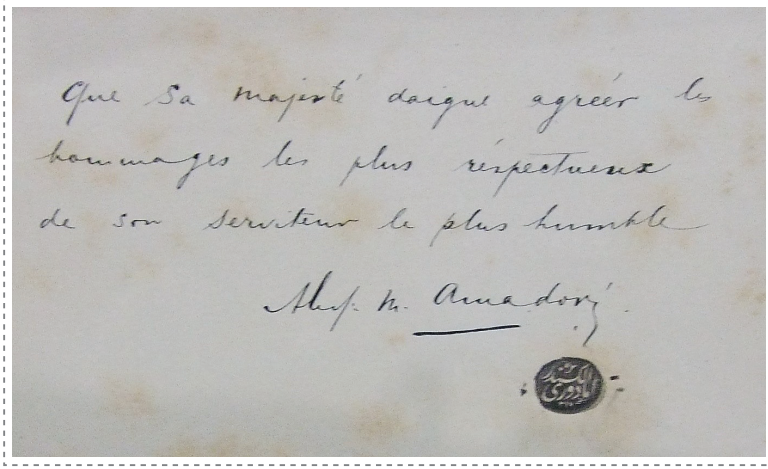 Que Sa Majesté daigne agréer les
hommages les plus réspectueux
de son serviteur le plus humble
M. Amadori